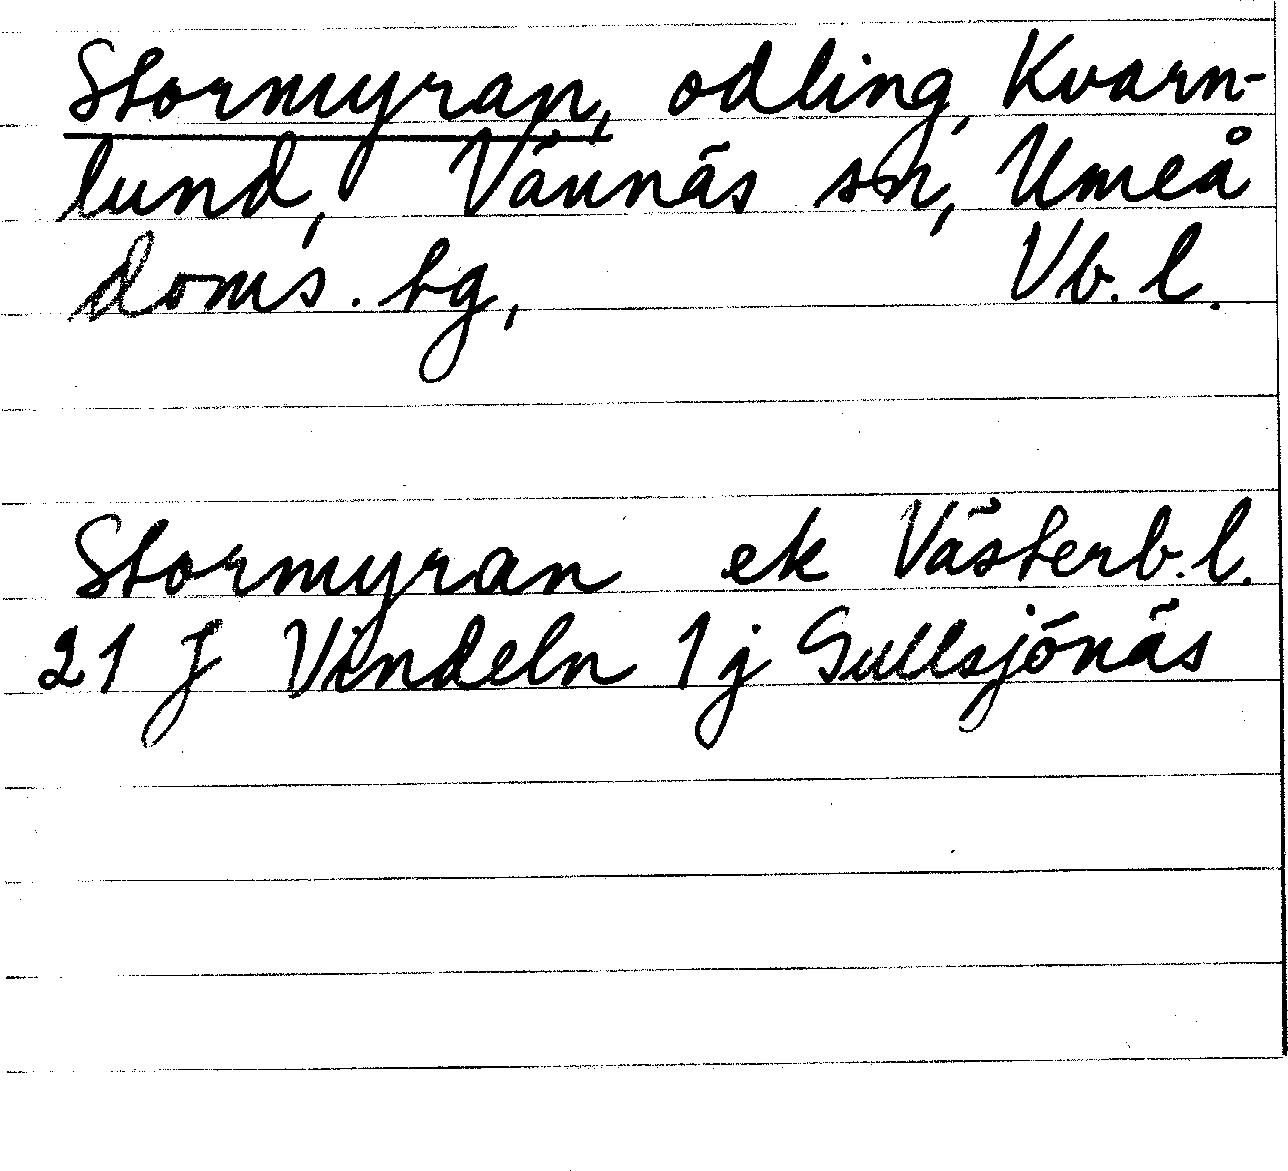 Stormyran, odling, Kvarn-
lund, Vännäs sn, Umeå
doms. tg, Vb. l.
Stormyran ek Västerb. l.
21 J Vindeln 1 j Gullsjönäs